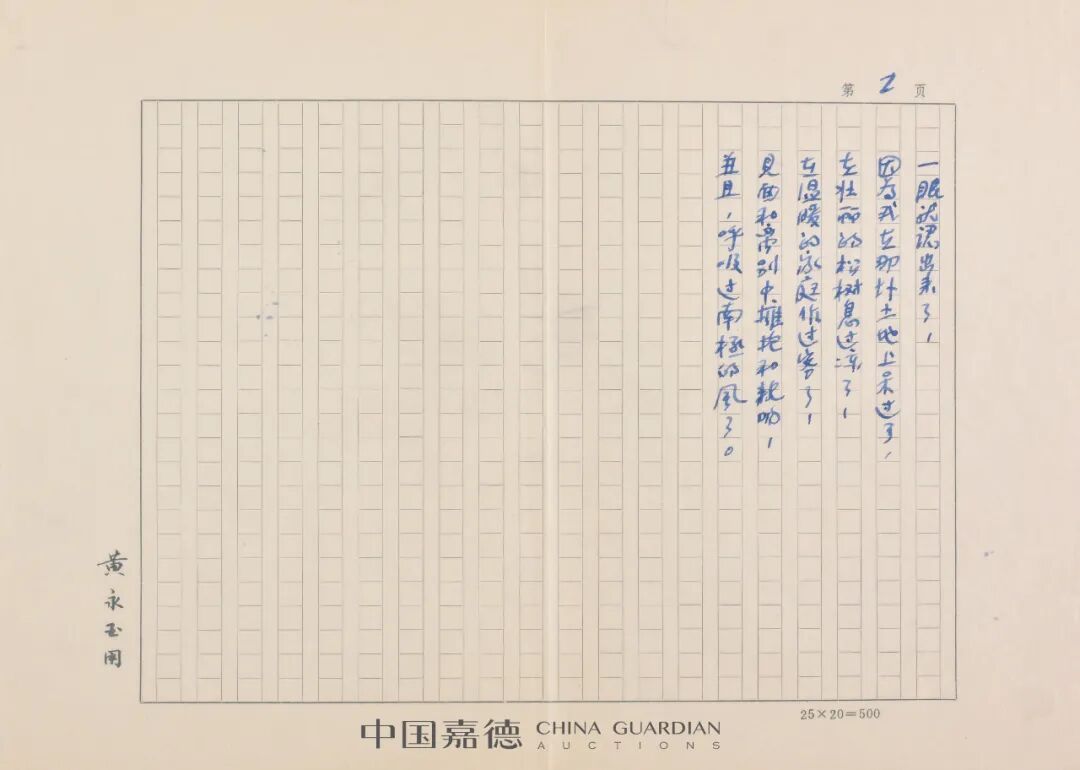 第2页
一眼就認出来了，
因为我在那塊土地上呆过了，
在壮丽的松树息过凉了，
在温暖的家庭作过客了，
見面和离别中擁抱和親吻，
並且，呼吸过南極的風了。
黄永玉用
25×20=500
中国嘉德 CHINA GUARDIAN
AUCTIONS